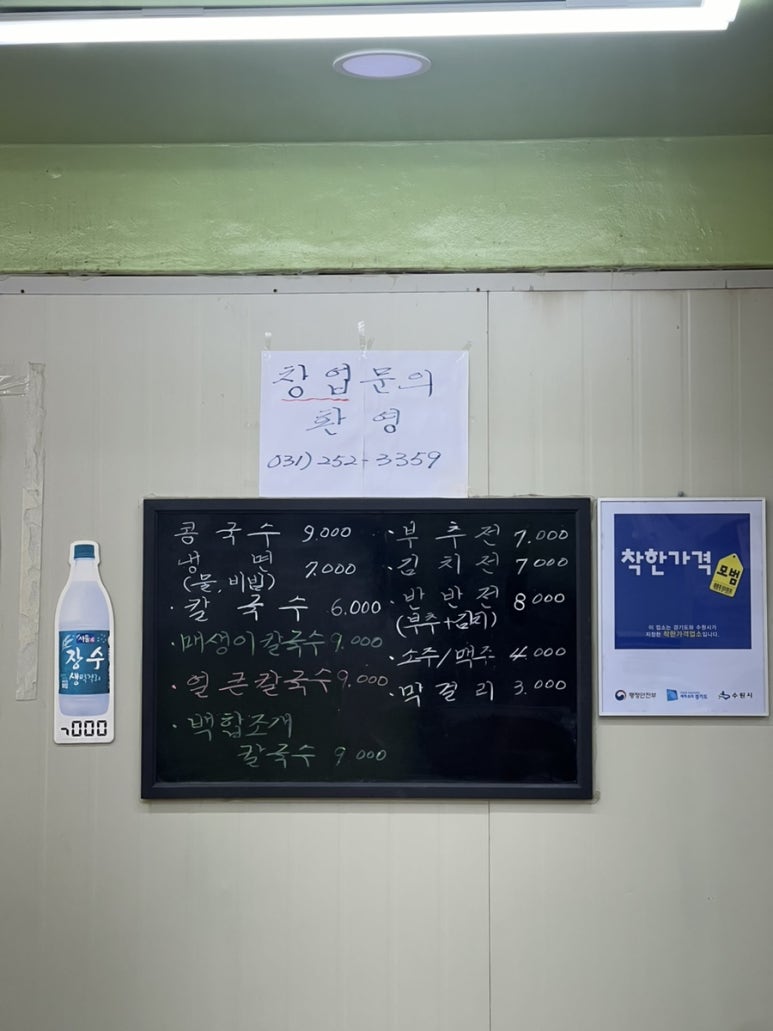 창업문의
환영
031) 252-3359
콩국수 9.000
냉면 7.000
(물, 비빔)
· 칼국수 6.000
· 매생이칼국수 9.000
· 얼큰칼국수 9.000
· 백합조개
칼국수 9 000
· 부추전 7.000
· 김치전 7000
· 반반전 8 000
(부추+김치)
· 소주/맥주 4.000
· 막걸리 3.000
서울
장수
생막걸리
000
착한가격
모범
이 업소는 경기도와 수원시가
지정한 착한가격업소입니다.
행정안전부
경기도
수원시